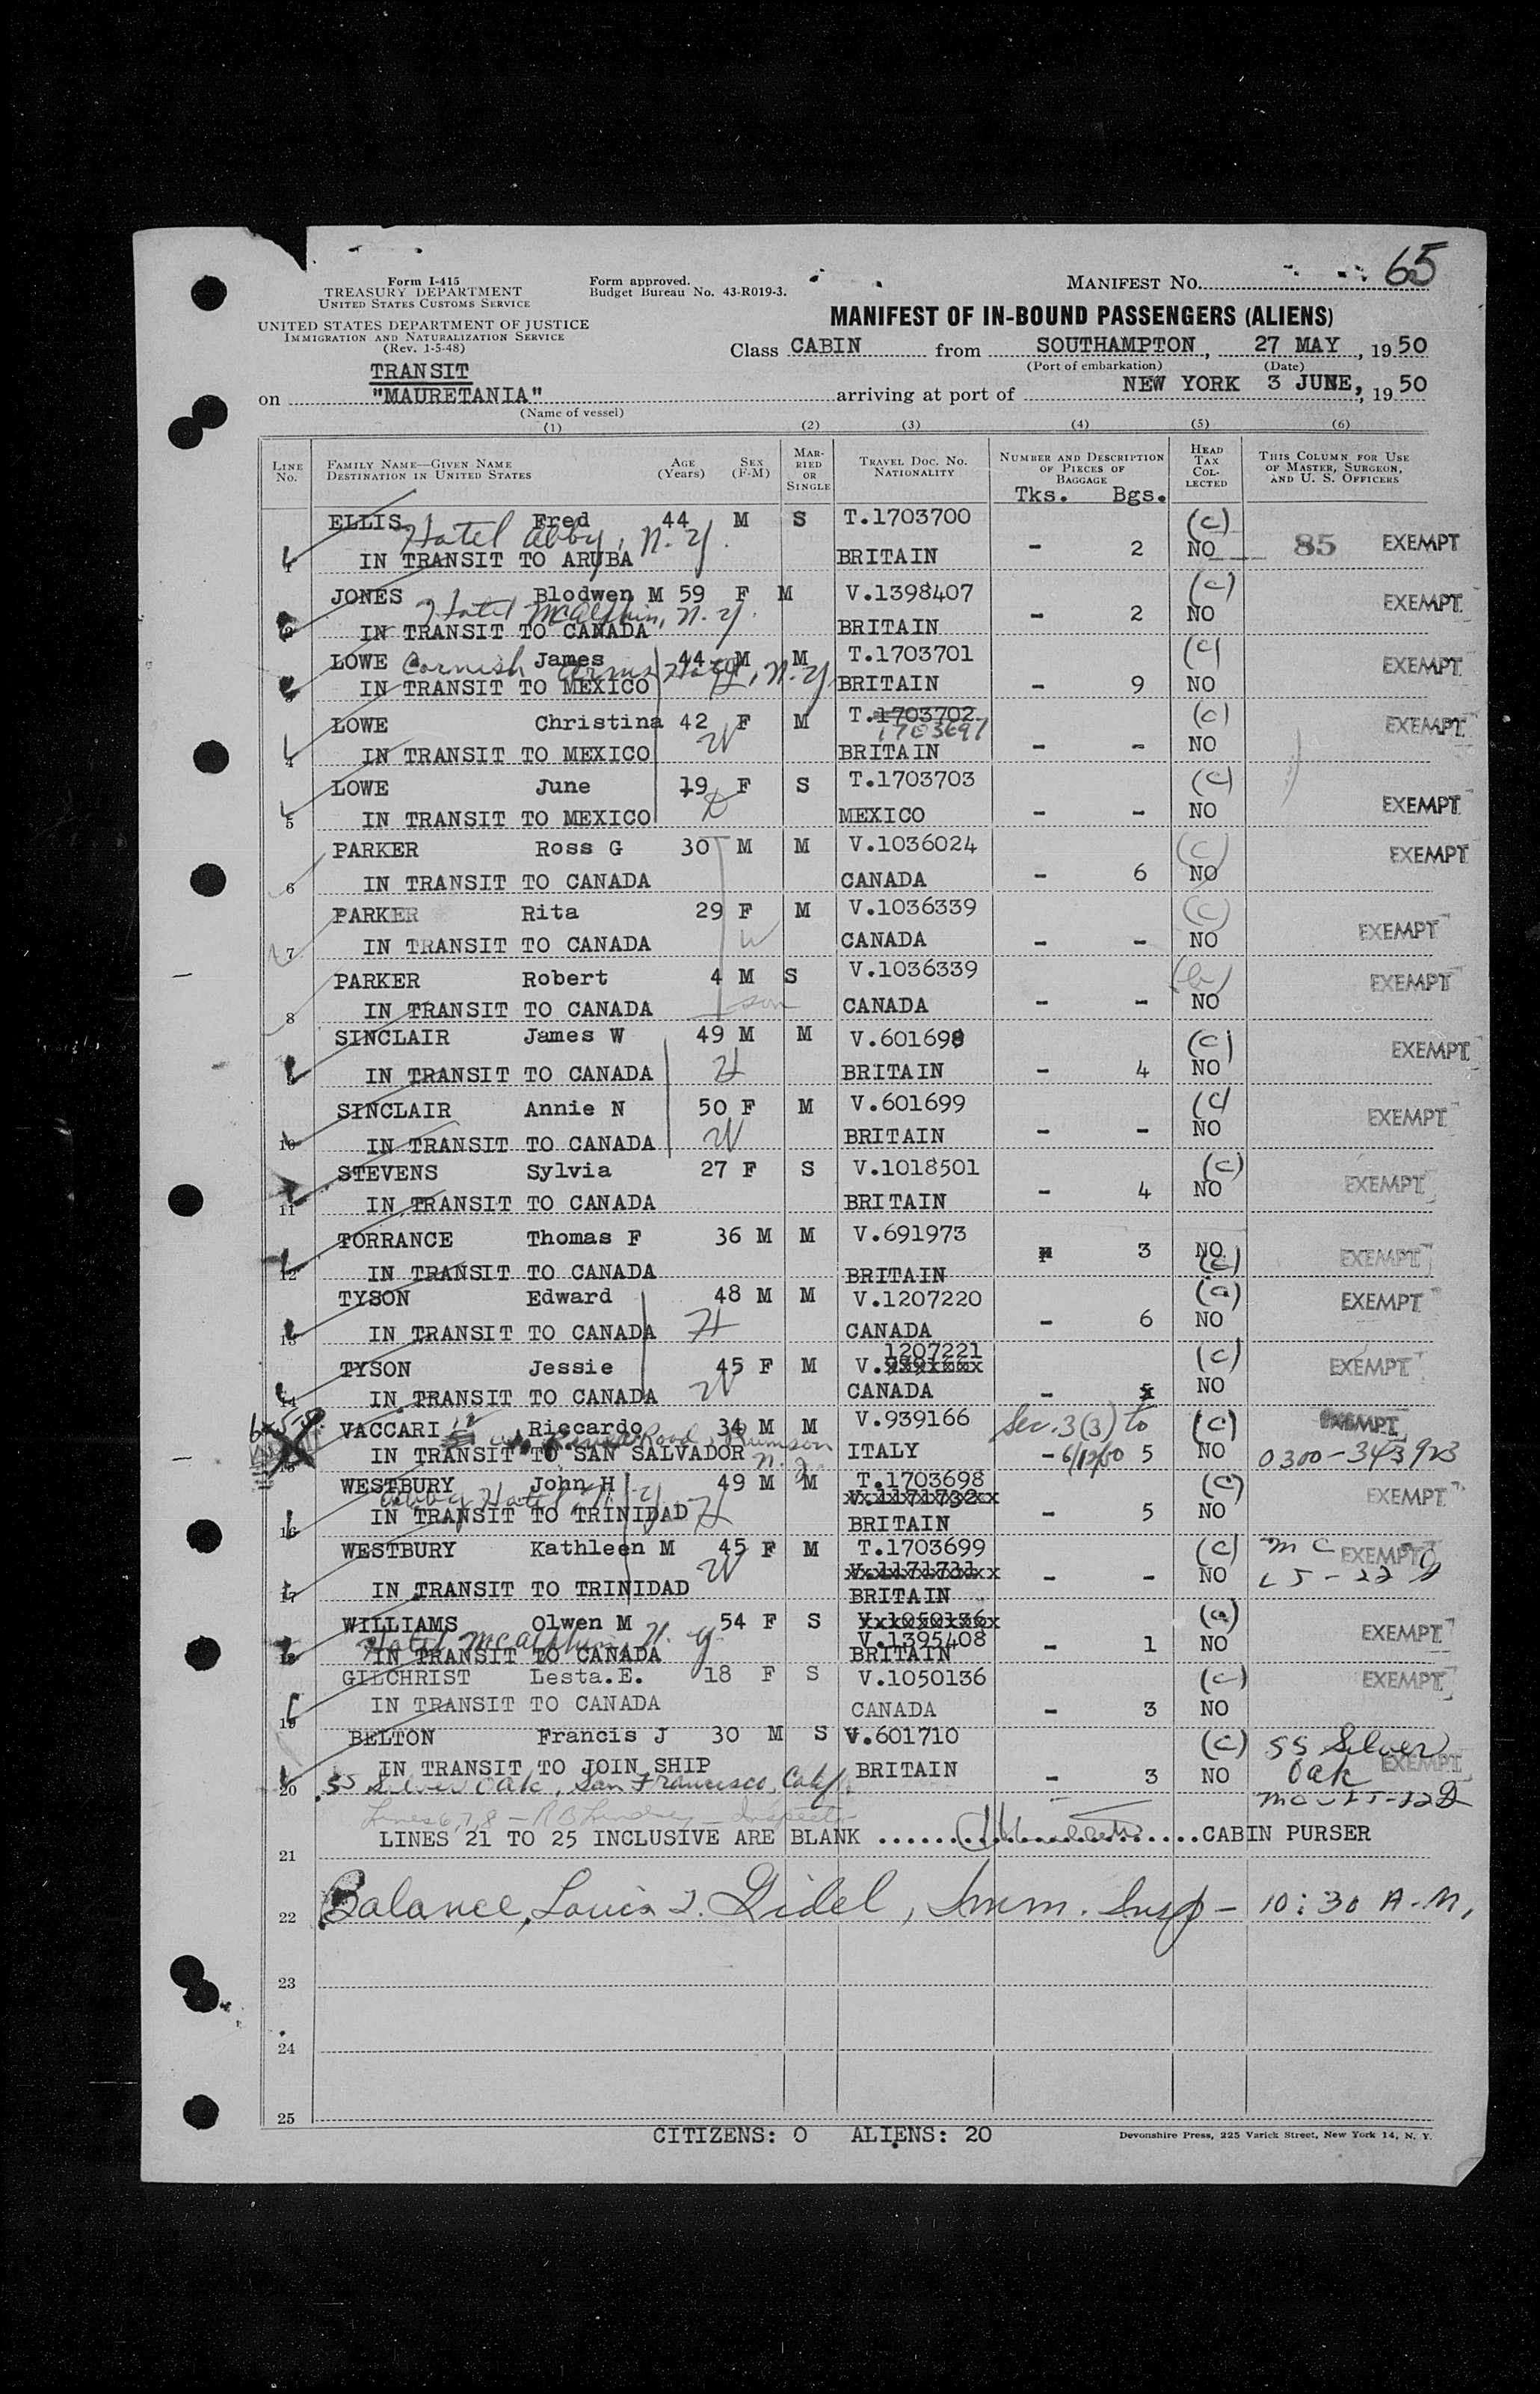 65
Form I-415
TREASURY DEPARTMENT
UNITED STATES CUSTOMS SERVICE
Form approved.
Budget Bureau No. 43-R019-3.
MANIFEST NO.
UNITED STATES DEPARTMENT OF JUSTICE
IMMIGRATION AND NATURALIZATION SERVICE
(Rev. 1-5-48)
MANIFEST OF IN-BOUND PASSENGERS (ALIENS)
Class CABIN from SOUTHAMPTON, 27 MAY, 1950
(Port of embarkation) (Date)
TRANSIT
on "MAURETANIA" arriving at port of NEW YORK 3 JUNE, 1950
(Name of vessel)
(1) (2) (3) (4) (5) (6)
LINE No. FAMILY NAME—GIVEN NAME DESTINATION IN UNITED STATES AGE (Years) SEX (F-M) MARRIED OR SINGLE TRAVEL DOC. NO. NATIONALITY NUMBER AND DESCRIPTION OF PIECES OF BAGGAGE HEAD TAX COLLECTED THIS COLUMN FOR USE OF MASTER, SURGEON, AND U. S. OFFICERS
Tks. Bgs.
ELLIS Fred 44 M S T.1703700 (c)
Hotel Abby, N.Y.
1 IN TRANSIT TO ARUBA BRITAIN - 2 NO 85 EXEMPT
JONES Blodwen M 59 F M V.1398407 (c) EXEMPT
Hotel McAlphin, N.Y.
2 IN TRANSIT TO CANADA BRITAIN - 2 NO
LOWE James 44 M M T.1703701 (c) EXEMPT
Cornish Arms Hotel, N.Y.
3 IN TRANSIT TO MEXICO H BRITAIN - 9 NO
LOWE Christina 42 F M T.1703702 (c) EXEMPT
1703697
4 IN TRANSIT TO MEXICO W BRITAIN - - NO
LOWE June 19 F S T.1703703 (c) EXEMPT
5 IN TRANSIT TO MEXICO D MEXICO - - NO
PARKER Ross G 30 M M V.1036024 (c) EXEMPT
6 IN TRANSIT TO CANADA CANADA - 6 NO
PARKER Rita 29 F M V.1036339 (c) EXEMPT
7 IN TRANSIT TO CANADA W CANADA - - NO
PARKER Robert 4 M S V.1036339 (b) EXEMPT
8 IN TRANSIT TO CANADA son CANADA - - NO
SINCLAIR James W 49 M M V.601698 (c) EXEMPT
IN TRANSIT TO CANADA H BRITAIN - 4 NO
SINCLAIR Annie N 50 F M V.601699 (c) EXEMPT
10 IN TRANSIT TO CANADA W BRITAIN - - NO
STEVENS Sylvia 27 F S V.1018501 (c) EXEMPT
11 IN TRANSIT TO CANADA BRITAIN - 4 NO
TORRANCE Thomas F 36 M M V.691973 3 NO EXEMPT
12 IN TRANSIT TO CANADA BRITAIN (c)
TYSON Edward 48 M M V.1207220 (a) EXEMPT
13 IN TRANSIT TO CANADA H CANADA - 6 NO
1207221
TYSON Jessie 45 F M V. (c) EXEMPT
14 IN TRANSIT TO CANADA W CANADA - NO
VACCARI Riccardo 34 M M V.939166 Sec. 3(3) to (c) EXEMPT
River Road, Rumson N.J.
15 IN TRANSIT TO SAN SALVADOR ITALY - 6/12/50 5 NO 0300-343923
WESTBURY John H 49 M M T.1703698 (c) EXEMPT
Abby Hotel, N.Y. V.1171732
16 IN TRANSIT TO TRINIDAD H BRITAIN - 5 NO
WESTBURY Kathleen M 45 F M T.1703699 (c) MC EXEMPT
V.1171731
17 IN TRANSIT TO TRINIDAD W BRITAIN - - NO
WILLIAMS Olwen M 54 F S V.1050136 (a) EXEMPT
Hotel McAlphin, N.Y. V.1395408
18 IN TRANSIT TO CANADA BRITAIN - 1 NO
GILCHRIST Lesta.E. 18 F S V.1050136 (c) EXEMPT
19 IN TRANSIT TO CANADA CANADA - 3 NO
BELTON Francis J 30 M S V.601710 (c) SS Silver Oak
20 IN TRANSIT TO JOIN SHIP BRITAIN - 3 NO EXEMPT
SS Silver Oak, San Francisco, Calif.
Lines 6,7,8 - R B Lindsey - Inspector
LINES 21 TO 25 INCLUSIVE ARE BLANK CABIN PURSER
21
22 Balance, Louis I. Gidel, Imm. Insp - 10:30 A.M.
23
24
25
CITIZENS: 0 ALIENS: 20
Devonshire Press, 225 Varick Street, New York 14, N. Y.